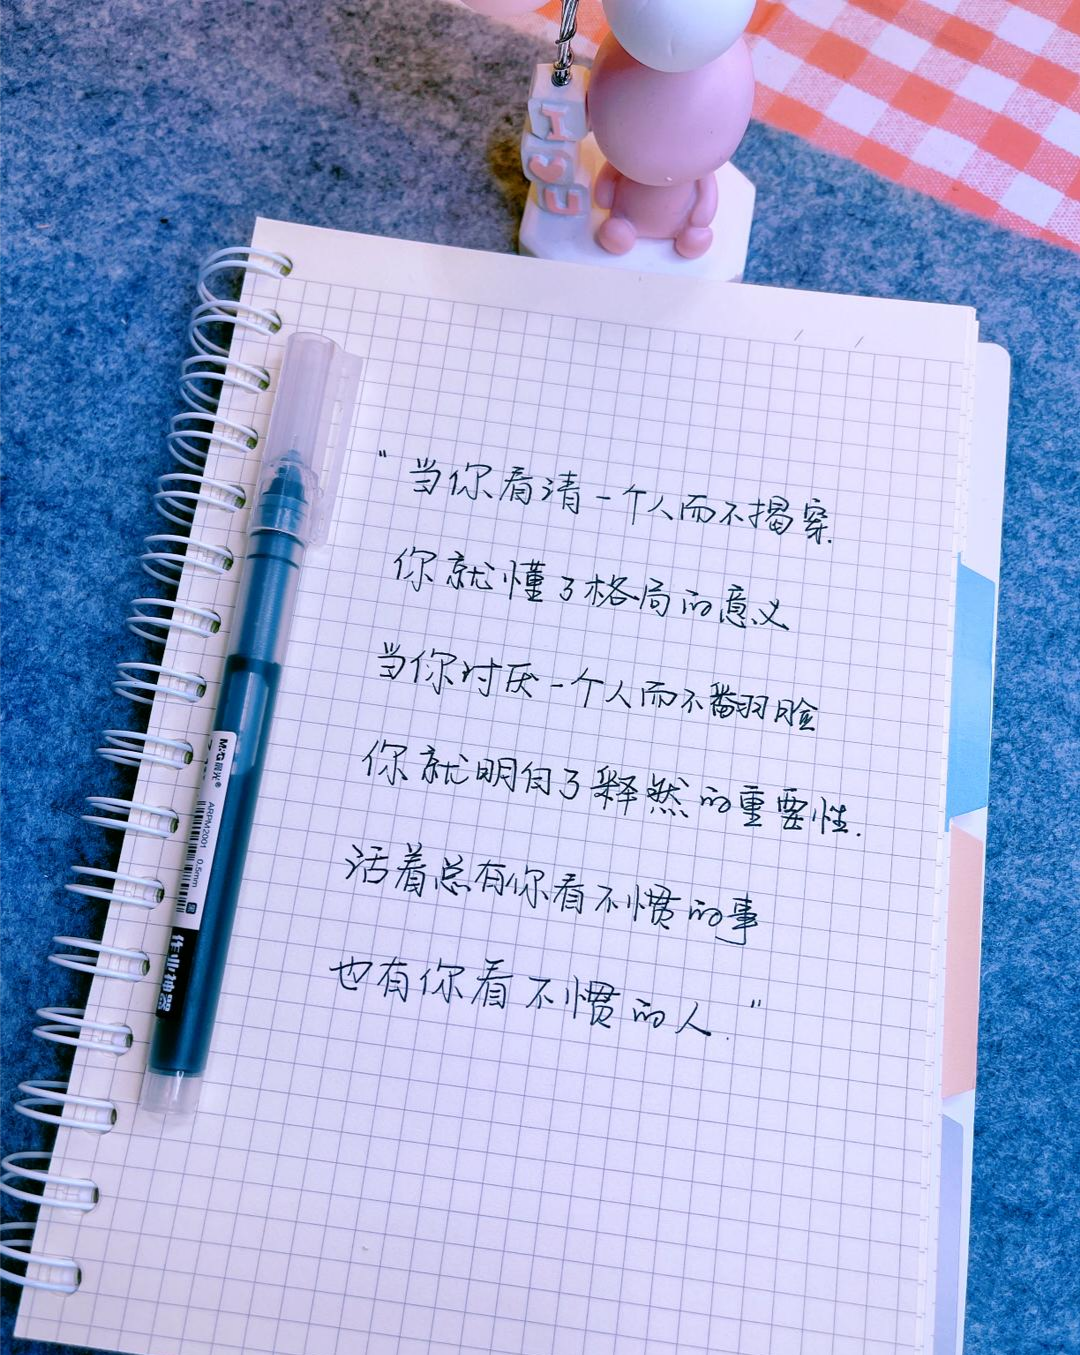 I
♥
U
"当你看清一个人而不揭穿.
你就懂了格局的意义
当你讨厌一个人而不翻脸
你就明白了释然的重要性.
活着总有你看不惯的事
也有你看不惯的人."
M&G晨光®
ARPM2001 0.5mm 黑
作业神器